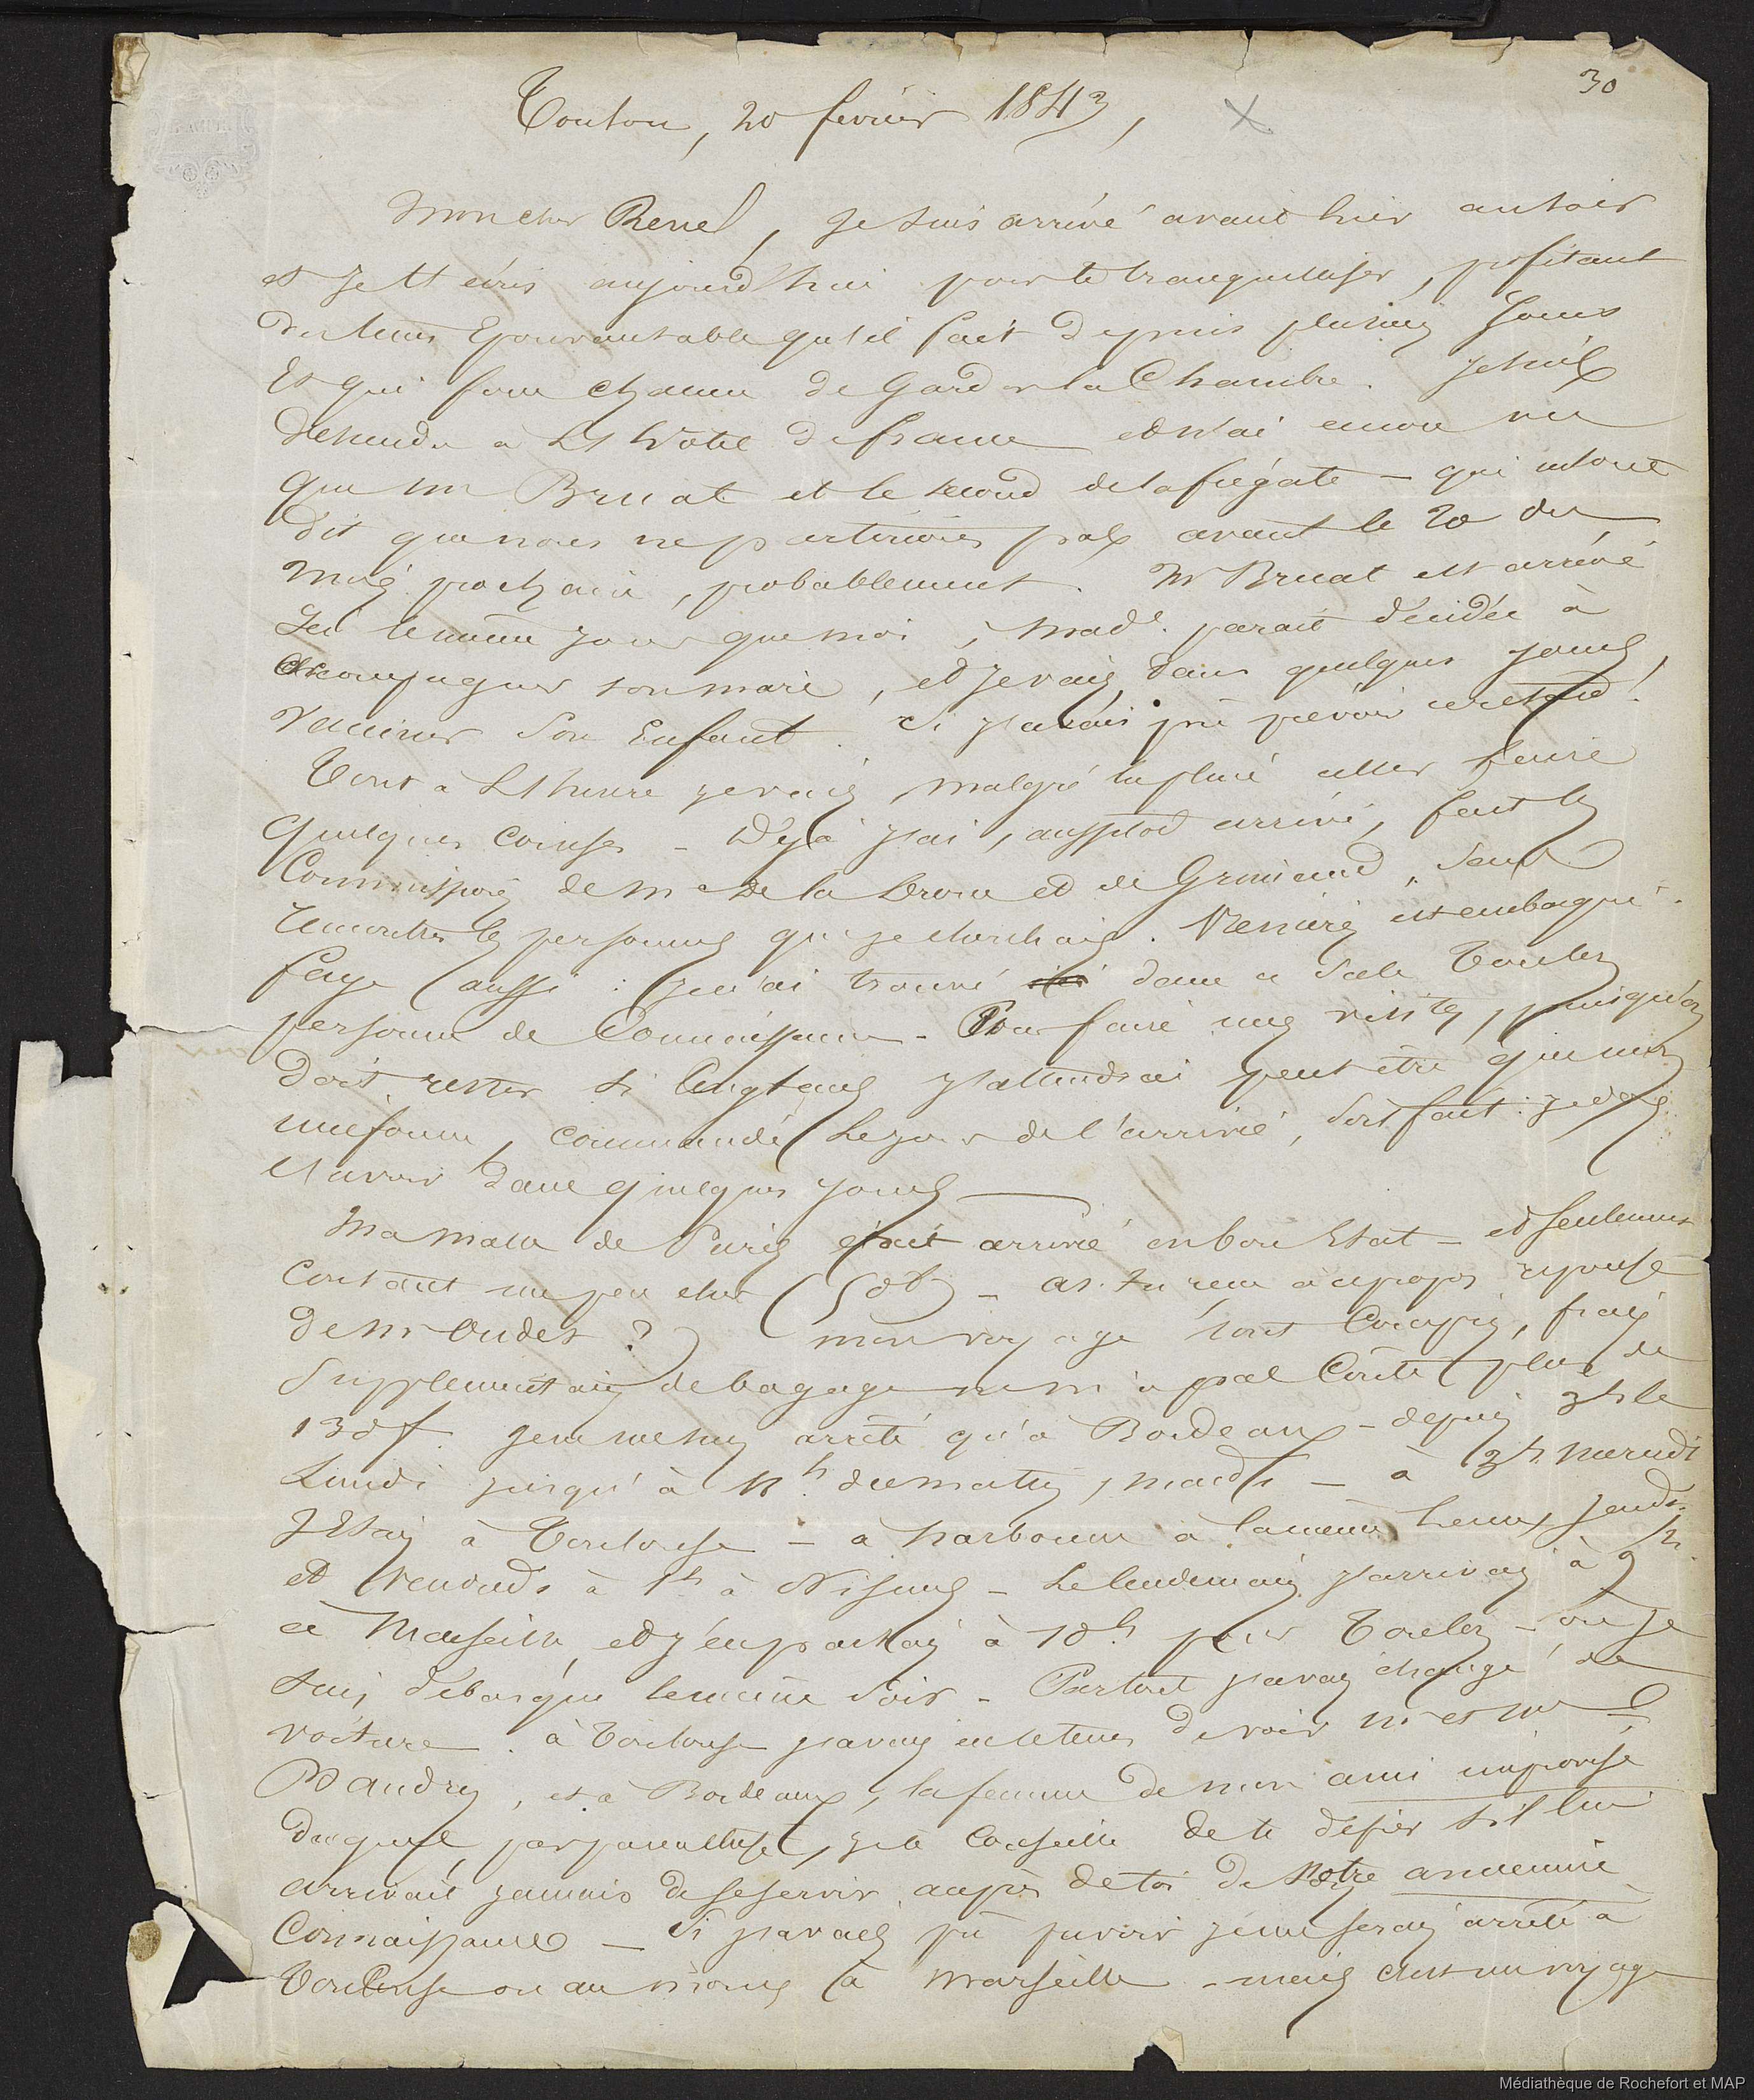 30
Toulon, 20 février 1843,
Mon cher René, je suis arrivé avant hier au soir
et je t'écris aujourd'hui pour te tranquilliser, profitant
du tems épouvantable qu'il fait depuis plusieurs jours
Et qui force chacun de garder la Chambre. Je suis
descendu à l'hôtel de france et n'ai encore vu
que mr Bruat et le second de la frégate - qui m'ont
dit que nous ne partirions pas avant le 20 du
mois prochain, probablement. Mr Bruat est arrivé
Ici le même jour que moi, made. parait décidée à
accompagner son mari, et je vais, dans quelques jours,
vacciner son Enfant. Si j'avais pu prévoir ce retard!
Tout à l'heure je vais, malgré la pluie aller faire
quelques courses - Déjà j'ai, aussitôt arrivé, fait les
Commissions de me de la et de Grimaud, sans
rencontrer les personnes que je cherchais. est embarqué.
Faye aussi : je n'ai trouvé dans ce sale Toulon
personne de Connaissance - Pour faire mes visites, puisqu'on
doit rester si longtems j'attendrai peut être que mon
uniforme, commandé le jour de l'arrivée, soit fait : je dois
l'avoir dans quelques jours
Ma malle de Paris était arrivée en bon Etat - et seulement
coutant un peu cher - as-tu reçu à ce propos réponse
de mr Oudet ? mon voyage tout Compris, frais
supplémentaires de bagage ne m'a pas Couté plus de
130f. je ne me suis arrêté qu'à Bordeaux - depuis 3h le
Lundi jusqu'à 11h. du matin, mardi - à 3h. mercredi
J'Etais à Toulouse - a Narbonne a la même heure, jeudi.
et Vendredi à 1h à Nismes - Le lendemain j'arrivais à 9h.
à Marseille, et j'en partais à 10h pour Toulon - où je
suis débarqué le même soir - Partout j'avais changé de
voiture. à Toulouse j'avais eu le tems de voir mr et me
Baudry, et à Bordeaux, la femme de mon ami improvisé
duquel, par parenthèse, je te Conseille de te défier s'il lui
arrivait jamais de se servir auprès de toi de Notre ancienne
Connaissance - Si j'avais pu prévoir je me serais arrêté à
Toulouse ou au moins à Marseille - mais c'est un voyage
Médiathèque de Rochefort et MAP